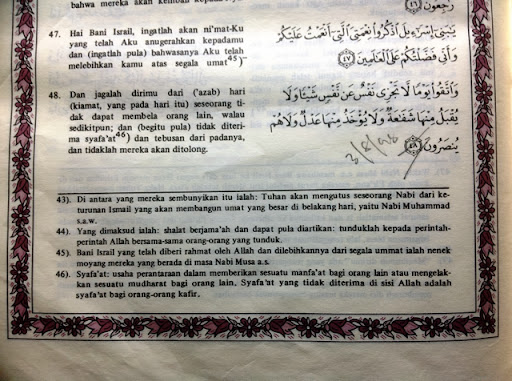 bahwa mereka akan kembali kepadanya
رٰجِعُوْنَ ﴿٤٦﴾
47. Hai Bani Israil, ingatlah akan ni'mat-Ku
yang telah Aku anugerahkan kepadamu
dan (ingatlah pula) bahwasanya Aku telah
melebihkan kamu atas segala umat45)
يٰبَنِيْٓ اِسْرَآءِيْلَ اذْكُرُوْا نِعْمَتِيَ الَّتِيْٓ اَنْعَمْتُ عَلَيْكُمْ
وَاَنِّيْ فَضَّلْتُكُمْ عَلَى الْعٰلَمِيْنَ ﴿٤٧﴾
48. Dan jagalah dirimu dari ('azab) hari
(kiamat, yang pada hari itu) seseorang ti-
dak dapat membela orang lain, walau
sedikitpun; dan (begitu pula) tidak diteri-
ma syafa'at46) dan tebusan dari padanya,
dan tidaklah mereka akan ditolong.
وَاتَّقُوْا يَوْمًا لَا تَجْزِيْ نَفْسٌ عَنْ نَفْسٍ شَيْـًٔا وَلَا
يُقْبَلُ مِنْهَا شَفَاعَةٌ وَلَا يُؤْخَذُ مِنْهَا عَدْلٌ وَلَا هُمْ
يُنْصَرُوْنَ ﴿٤٨﴾
43). Di antara yang mereka sembunyikan itu ialah: Tuhan akan mengutus seseorang Nabi dari ke-
turunan Ismail yang akan membangun umat yang besar di belakang hari, yaitu Nabi Muhammad
s.a.w.
44). Yang dimaksud ialah: shalat berjama'ah dan dapat pula diartikan: tunduklah kepada perintah-
perintah Allah bersama-sama orang-orang yang tunduk.
45). Bani Israil yang telah diberi rahmat oleh Allah dan dilebihkannya dari segala ummat ialah nenek
moyang mereka yang berada di masa Nabi Musa a.s.
46). Syafa'at: usaha perantaraan dalam memberikan sesuatu manfa'at bagi orang lain atau mengelak-
kan sesuatu mudharat bagi orang lain. Syafa'at yang tidak diterima di sisi Allah adalah
syafa'at bagi orang-orang kafir.